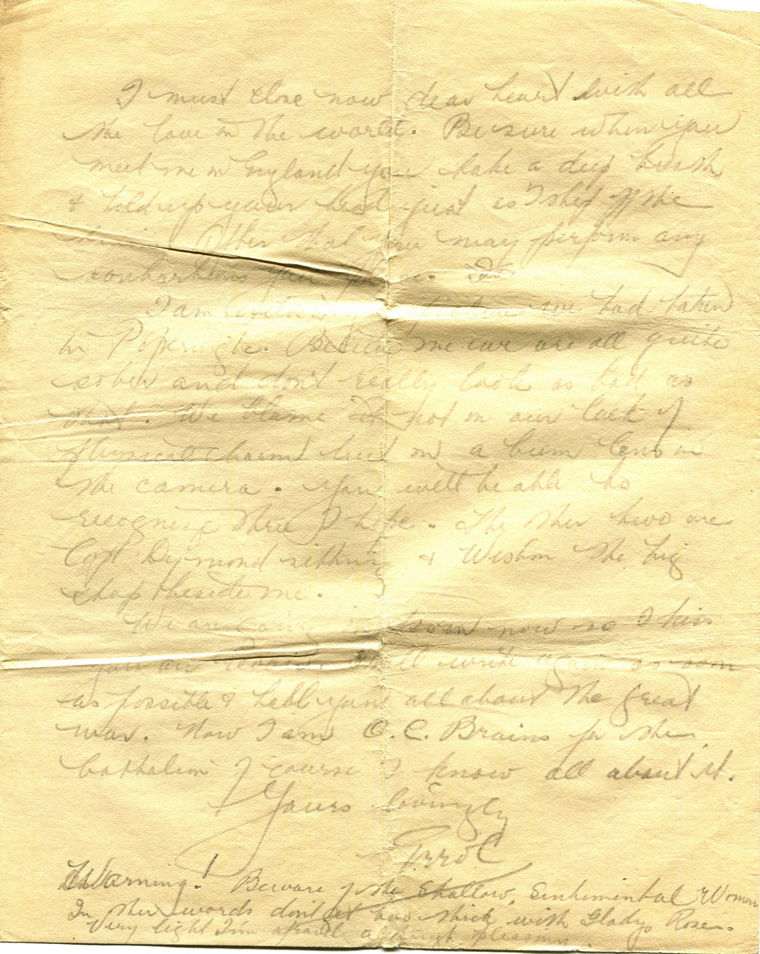 I must close now dear heart with all
the love in the world. Be sure when you
meet me in England you take a deep breath
& hold up your head just as I step off the
Other that you may perform any
you
I am we had taken
in Poperinghe. Believe me we are all quite
sober and don't really look as bad as
that. We blame it not on our lack of
physical charm but on a bum lens in
the camera. You will be able to
recognize three I hope. The other two are
Capt Dymond sitting & Wisdom the big
chap beside me.
We are going in soon now so I kiss
you Will write again as soon
as possible & tell you all about the great
war. Now I am O.C. Brains for the
battalion of course I know all about it.
Yours lovingly
Errol
Warning! Beware of the Shallow, Sentimental Women
In other words don't get too thick with Gladys Rose.
Very light I'm afraid